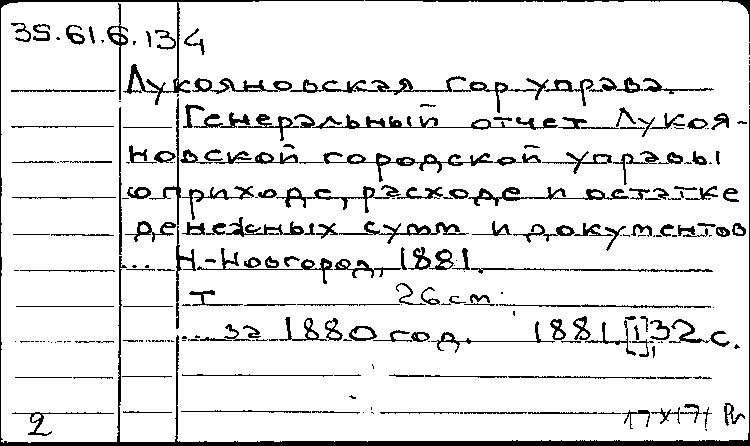 35.61.6.134
Лукояновская гор. управа.
Генеральный отчет Лукоя-
новской городской управы
о приходе, расходе и остатке
денежных сумм и документов
... Н.-Новгород, 1881.
т 26 cm.
... за 1880 год. 1881. [1], 32 с.
2